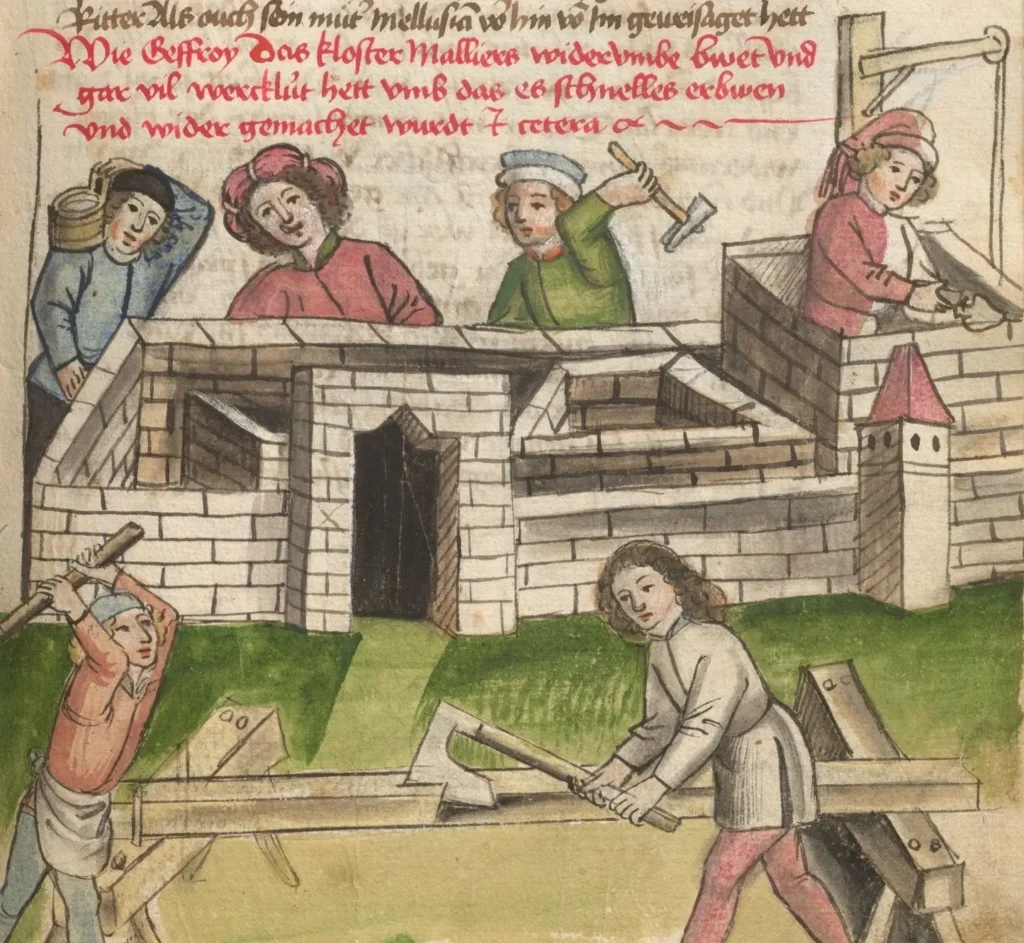 Ritter Als ouch sin müt mellusiā vō hin vō Im geweisaget hett
Wie Geffroy Das kloster Malliers widerumbe bwet vnd
gar vil wercklüt hett vmb das es schnelles erbwen
vnd wider gemachet wurdt ⁊ cetera